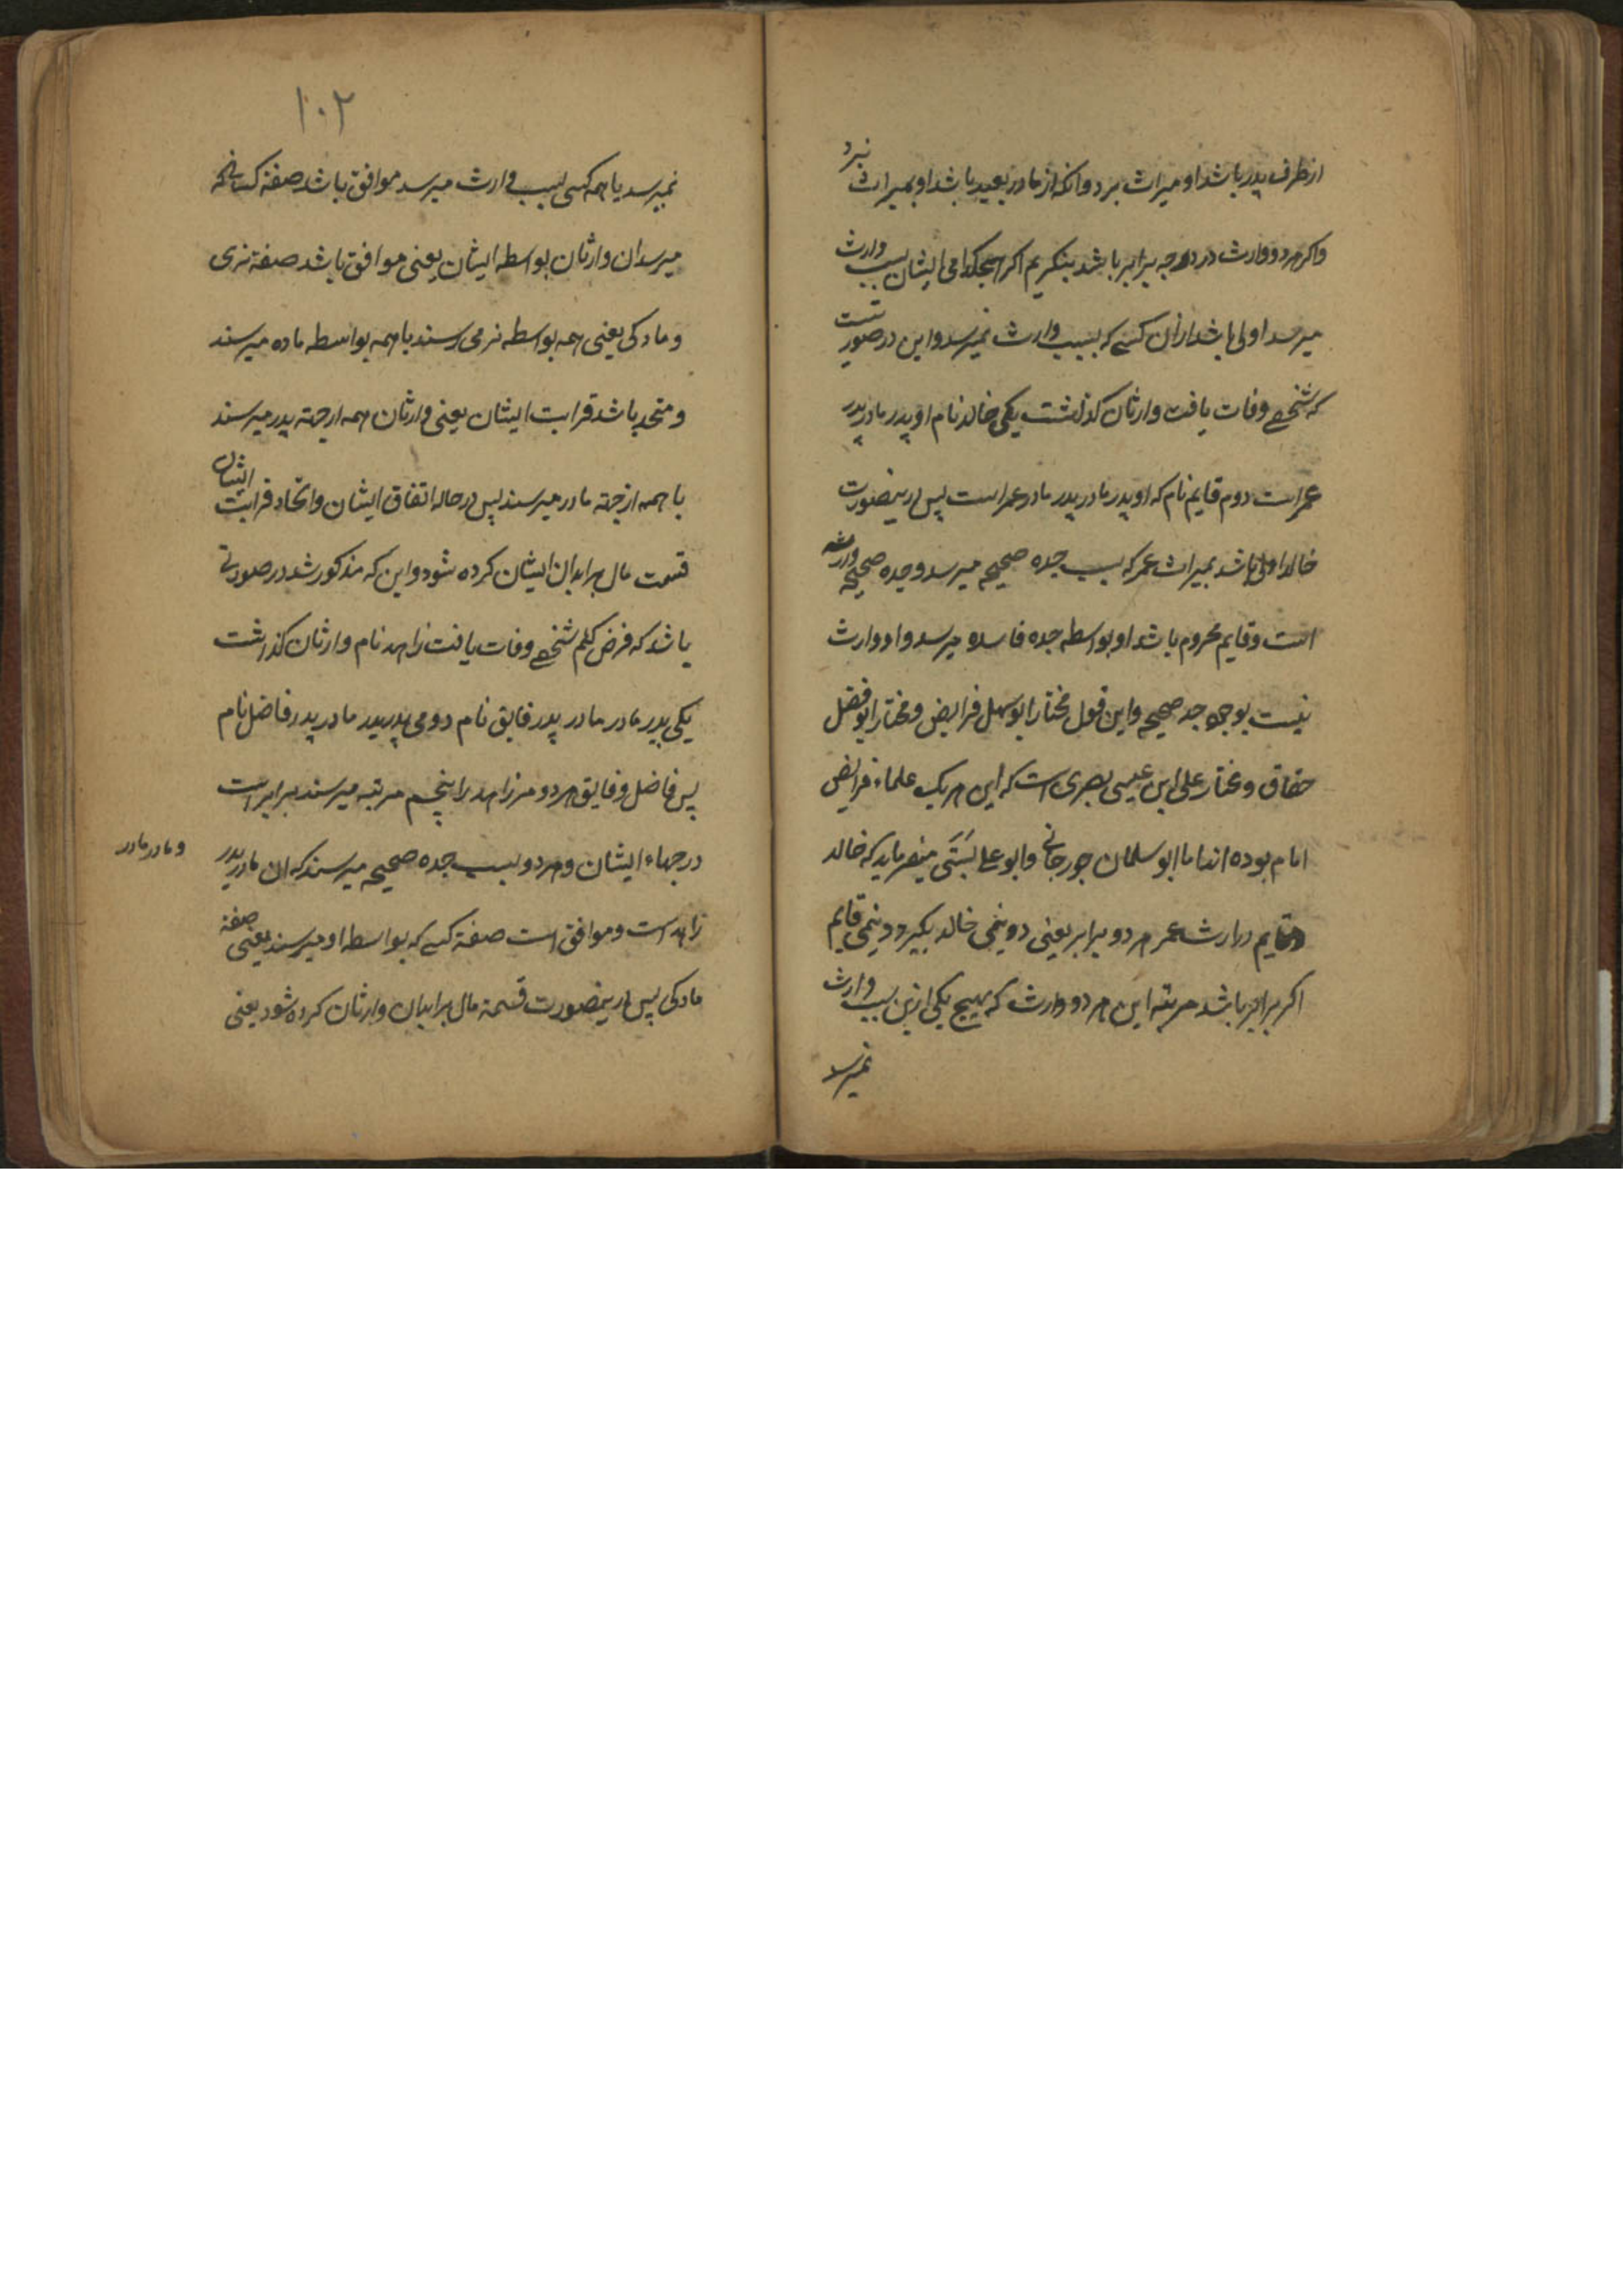 از طرف پدر باشد او میراث برد و انکه از مادر بعید باشد او میراث نبرد
واکر هر دو وارث در درجه برابر باشد بنکریم اکر هیچکدامی ایشان بسبب وارث
میرسد اولی باشد ازان کسے که بسبب وارث نمیرسد و این در صورتست
که شخصے وفات یافت وارثان کذاشت یکی خالد نام او پدر مادر پدر
عمر است دوم قایم نام که او پدر مادر پدر مادر عمر است پس درینصورت
خالد اولی باشد بمیراث عمر که بسبب جده صحیحه میرسد و جده صحیحه وارثه
است و قایم محروم باشد او بواسطه جده فاسده میرسد و او وارث
نیست بوجود جد صحیح و این قول مختار ابو سهل فرایض و مختار ابو فضل
خفاق و مختار علی ابن عیسی بصری است که این هر یک علماء فرایض
امام بوده اند اما ابو سلمان جورجانے و ابو علے بَستَی میفرماید که خالد
و قایم در ارث عمر هر دو برابر یعنی دو نیمی خالد بکیرد و نیمی قایم
اکر برابر باشد مرتبه این هر دو وارث که هیچ یکی ازین بسبب وارث
نمیرسد
۱۰۲
نمیرسد یا همه کسی بسبب وارث میرسد موافق باشد صفة کسانیکه
میرسد ان وارثان بواسطه ایشان یعنی موافق باشد صفة نری
و مادکی یعنی همه بواسطه نر می رسند یا همه بواسطه ماده میرسند
و متحد باشد قرابت ایشان یعنی وارثان همه از جهة پدر میرسند
یا همه از جهة مادر میرسند پس در حاله اتفاق ایشان و اتحاد قرابت ایشان
قسمت مال بر ابدان ایشان کرده شود و این که مذکور شد در صورتے
باشد که فرض کنم شخصے وفات یافت زاهد نام وارثان کذاشت
یکی پدر مادر مادر پدر فایق نام دومی پدر پدر مادر پدر فاضل نام
پس فاضل و فایق هر دو مر زاهد را پنجم مرتبه میرسند برابر است
درجهاء ایشان و هر دو بسبب جده صحیحه میرسند که ان مادر پدر
و مادر مادر
زاهد است و موافق است صفة کسے که بواسطه او میرسند یعنی صفة
مادکی پس درینصورت قسمة مال بر ابدان وارثان کرده شود یعنی